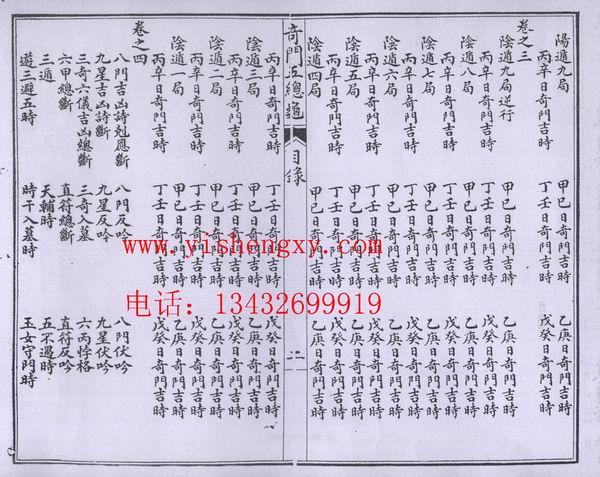 陽遁九局 甲巳日奇門吉時 乙庚日奇門吉時
丙辛日奇門吉時 丁壬日奇門吉時 戊癸日奇門吉時
卷之三
陰遁九局逆行 甲巳日奇門吉時 乙庚日奇門吉時
丙辛日奇門吉時 丁壬日奇門吉時 戊癸日奇門吉時
陰遁八局 甲巳日奇門吉時 乙庚日奇門吉時
丙辛日奇門吉時 丁壬日奇門吉時 戊癸日奇門吉時
陰遁七局 甲巳日奇門吉時 乙庚日奇門吉時
丙辛日奇門吉時 丁壬日奇門吉時 戊癸日奇門吉時
陰遁六局 甲巳日奇門吉時 乙庚日奇門吉時
丙辛日奇門吉時 丁壬日奇門吉時 戊癸日奇門吉時
陰遁五局 甲巳日奇門吉時 乙庚日奇門吉時
丙辛日奇門吉時 丁壬日奇門吉時 戊癸日奇門吉時
陰遁四局 甲巳日奇門吉時 乙庚日奇門吉時
奇門五總龜 目錄 二
丙辛日奇門吉時 丁壬日奇門吉時 戊癸日奇門吉時
陰遁三局 甲巳日奇門吉時 乙庚日奇門吉時
丙辛日奇門吉時 丁壬日奇門吉時 戊癸日奇門吉時
陰遁二局 甲巳日奇門吉時 乙庚日奇門吉時
丙辛日奇門吉時 丁壬日奇門吉時 戊癸日奇門吉時
陰遁一局 甲巳日奇門吉時 乙庚日奇門吉時
丙辛日奇門吉時 丁壬日奇門吉時 戊癸日奇門吉時
卷之四
八門吉凶詩剋應斷 八門反吟 八門伏吟
九星吉凶詩斷 九星反吟 九星伏吟
三奇六儀吉凶總斷 三奇入墓 六丙悖格
六甲總斷 直符總斷 直符反吟
三遁 天輔時 五不遇時
遊三避五時 時干入墓時 玉女守門時
www.yishengxy.com
电话：13432699919